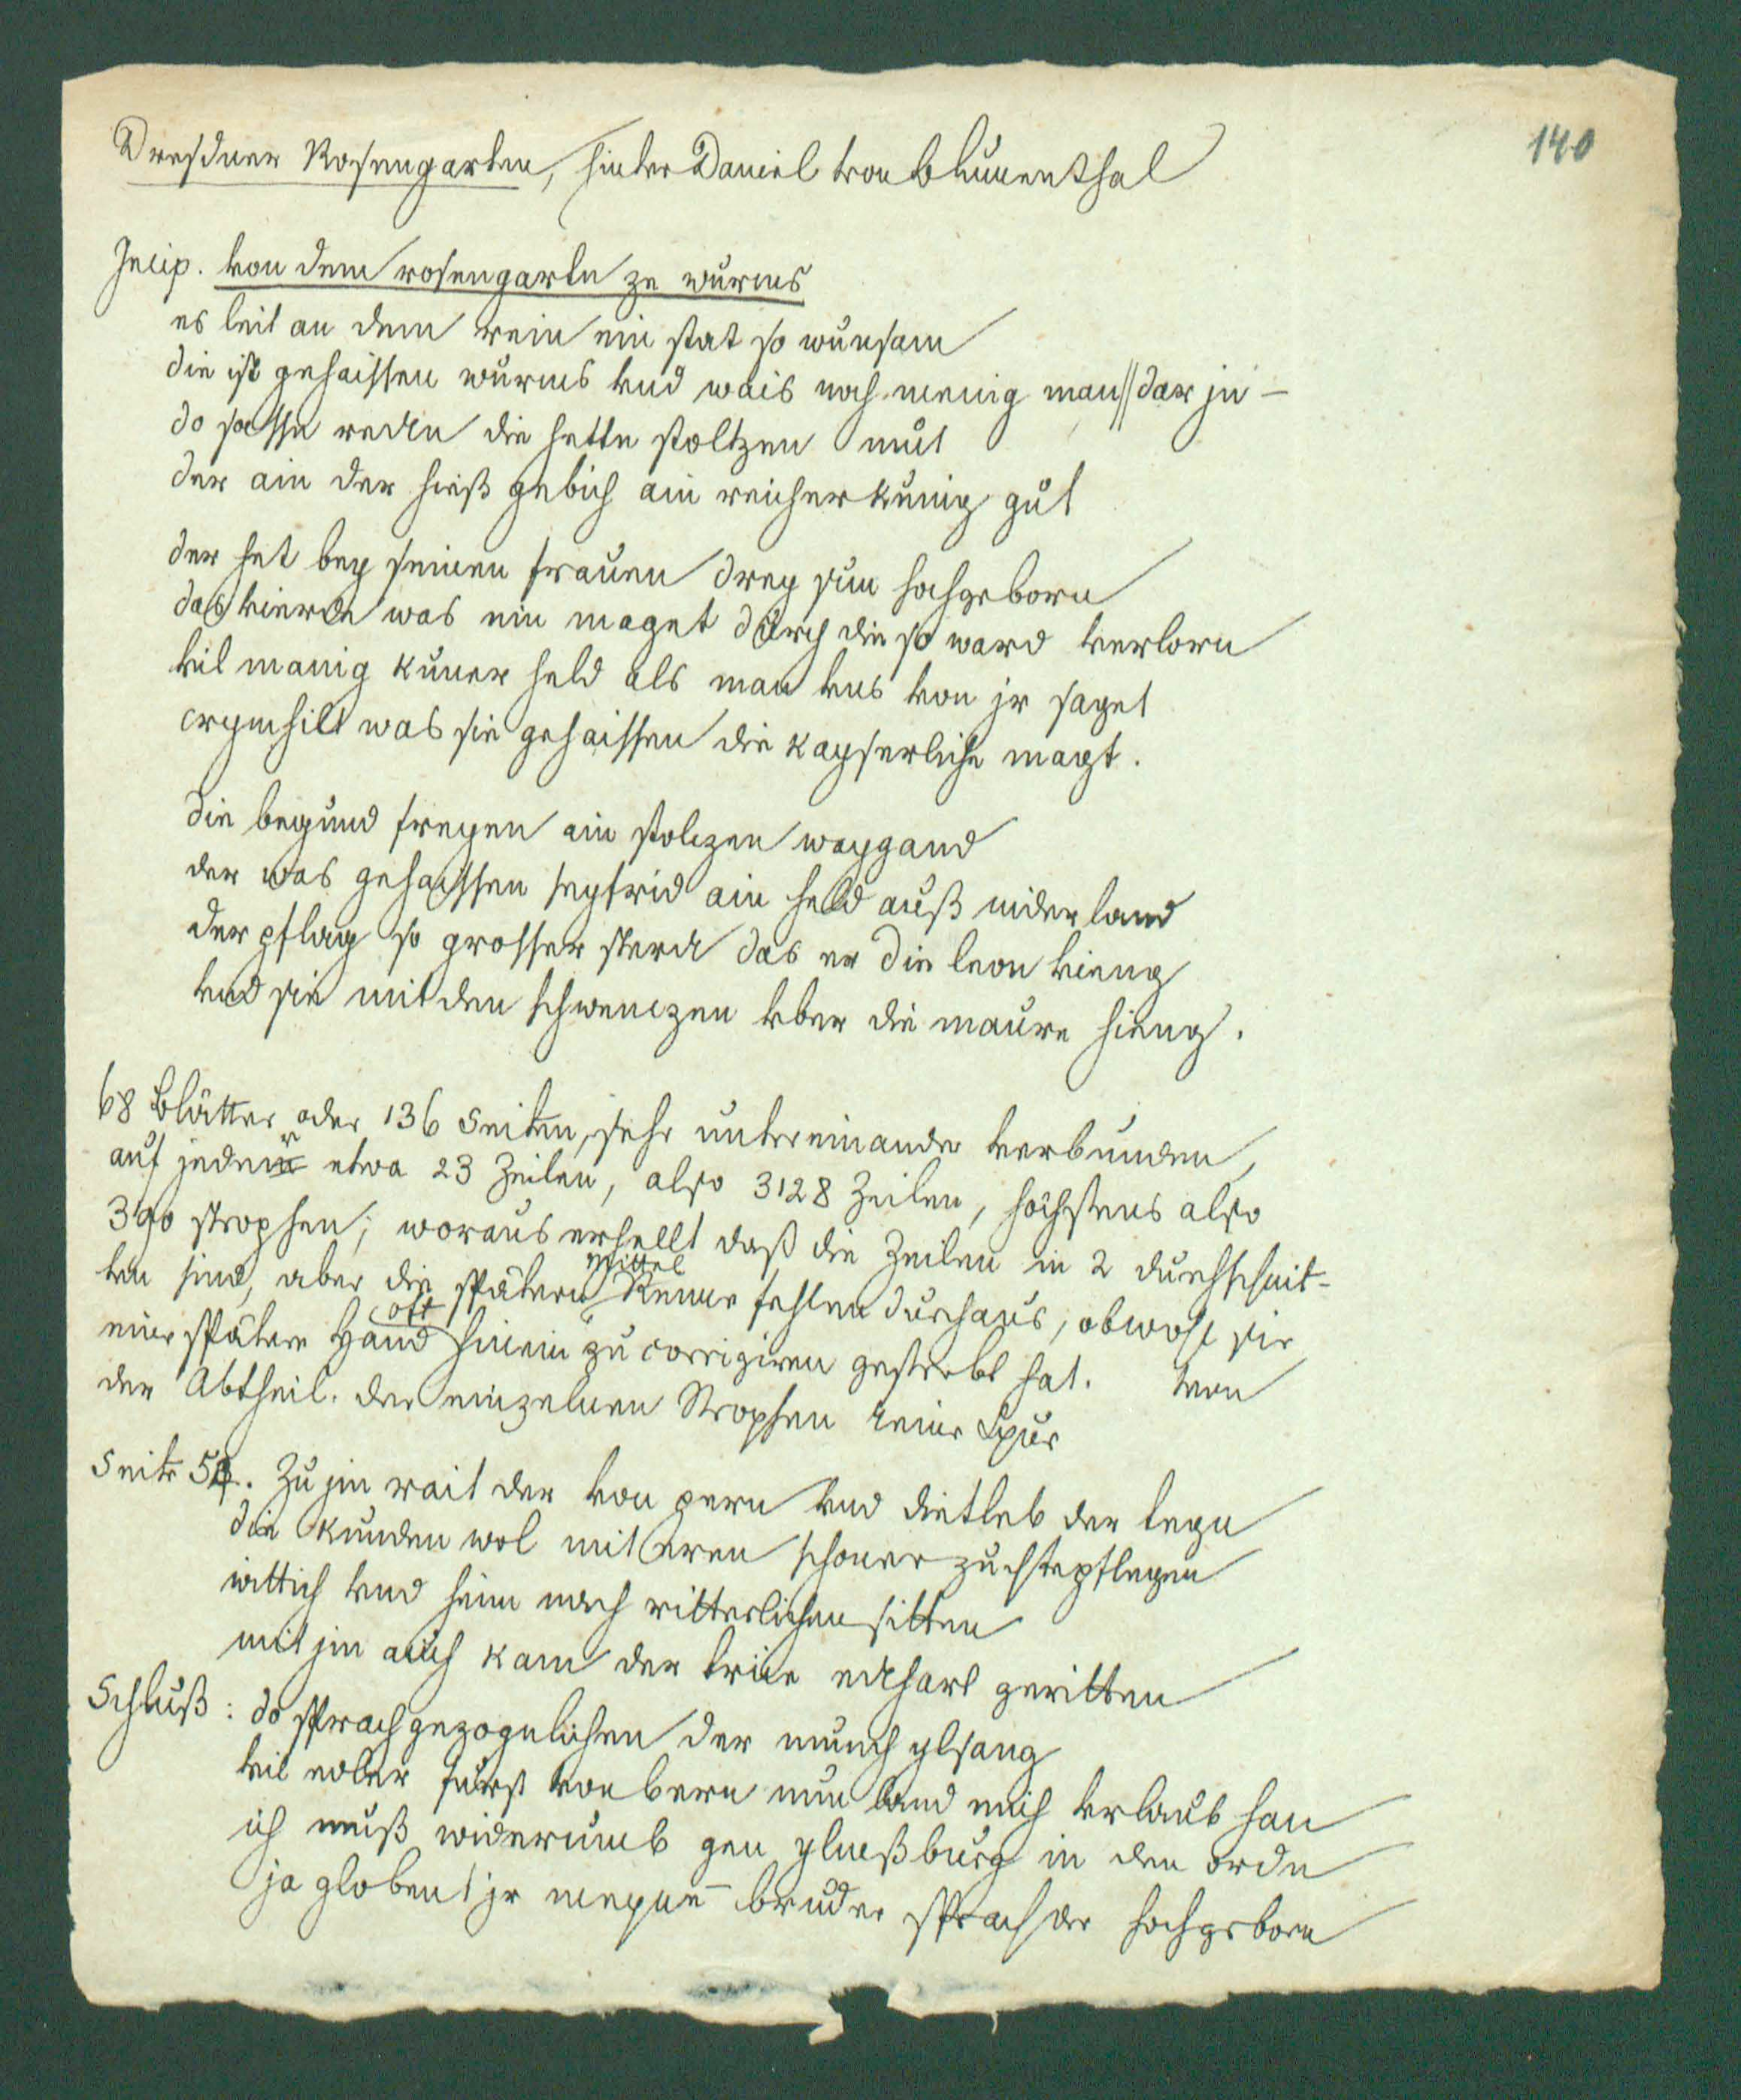 140
Dresdner Rosengarten, hinter Daniel von Blumenthal
Incip. von dem rosengarten ze wurms
es leit an dem rein ein stat so wunsam
die ist gehaissen wurms vnd wais noch menig man || dar jn –
do sasse recken die hette stoltzen mut
der ain der hieß gebich ain reicher kunig gut
der het bey seinen frauen drey sun hochgeborn
das vierde was ein maget durch die so ward verlorn
vil manig kuner held als man vns von jr saget
crymhilt was sie gehaissen die kayserliche magt.
die begund freyen ain stolczen waygand
der was gehaissen seyfrid ain held auß niderland
der pflag so grosser sterck das er die leon vieng
vnd sie mit den schwenczen vber die maure hieng.
68 Blätter oder 136 Seiten, sehr untereinander verbunden,
auf jeder etwa 23 Zeilen, also 3128 Zeilen, höchstens also
390 strophen; woraus erhellt daß die Zeilen in 2 durchschnit-
ten sind, aber die spätern Mittel Reime fehlen durchaus, obwohl sie
eine spätere Hand oft hinein zu corrigiren gestrebt hat. Von
der Abtheil. der einzelnen Strophen keine Spur
Seite 54. Zu jm rait der von pern vnd dietleb der tegn
die kunden wol mit eren schoner zuchte pflegen
wittich vnd heim nach ritterlichen sitten
mit jm auch kam der triue eckhart geritten
Schluß: do sprach gezogenlichen der munch ylsang
vil edler fürst von bern nun land mich vrlaub han
ich muß widerumb gen ylmeßburg in den orden
ja globent jr meyne bruder sprach der hochgeborn